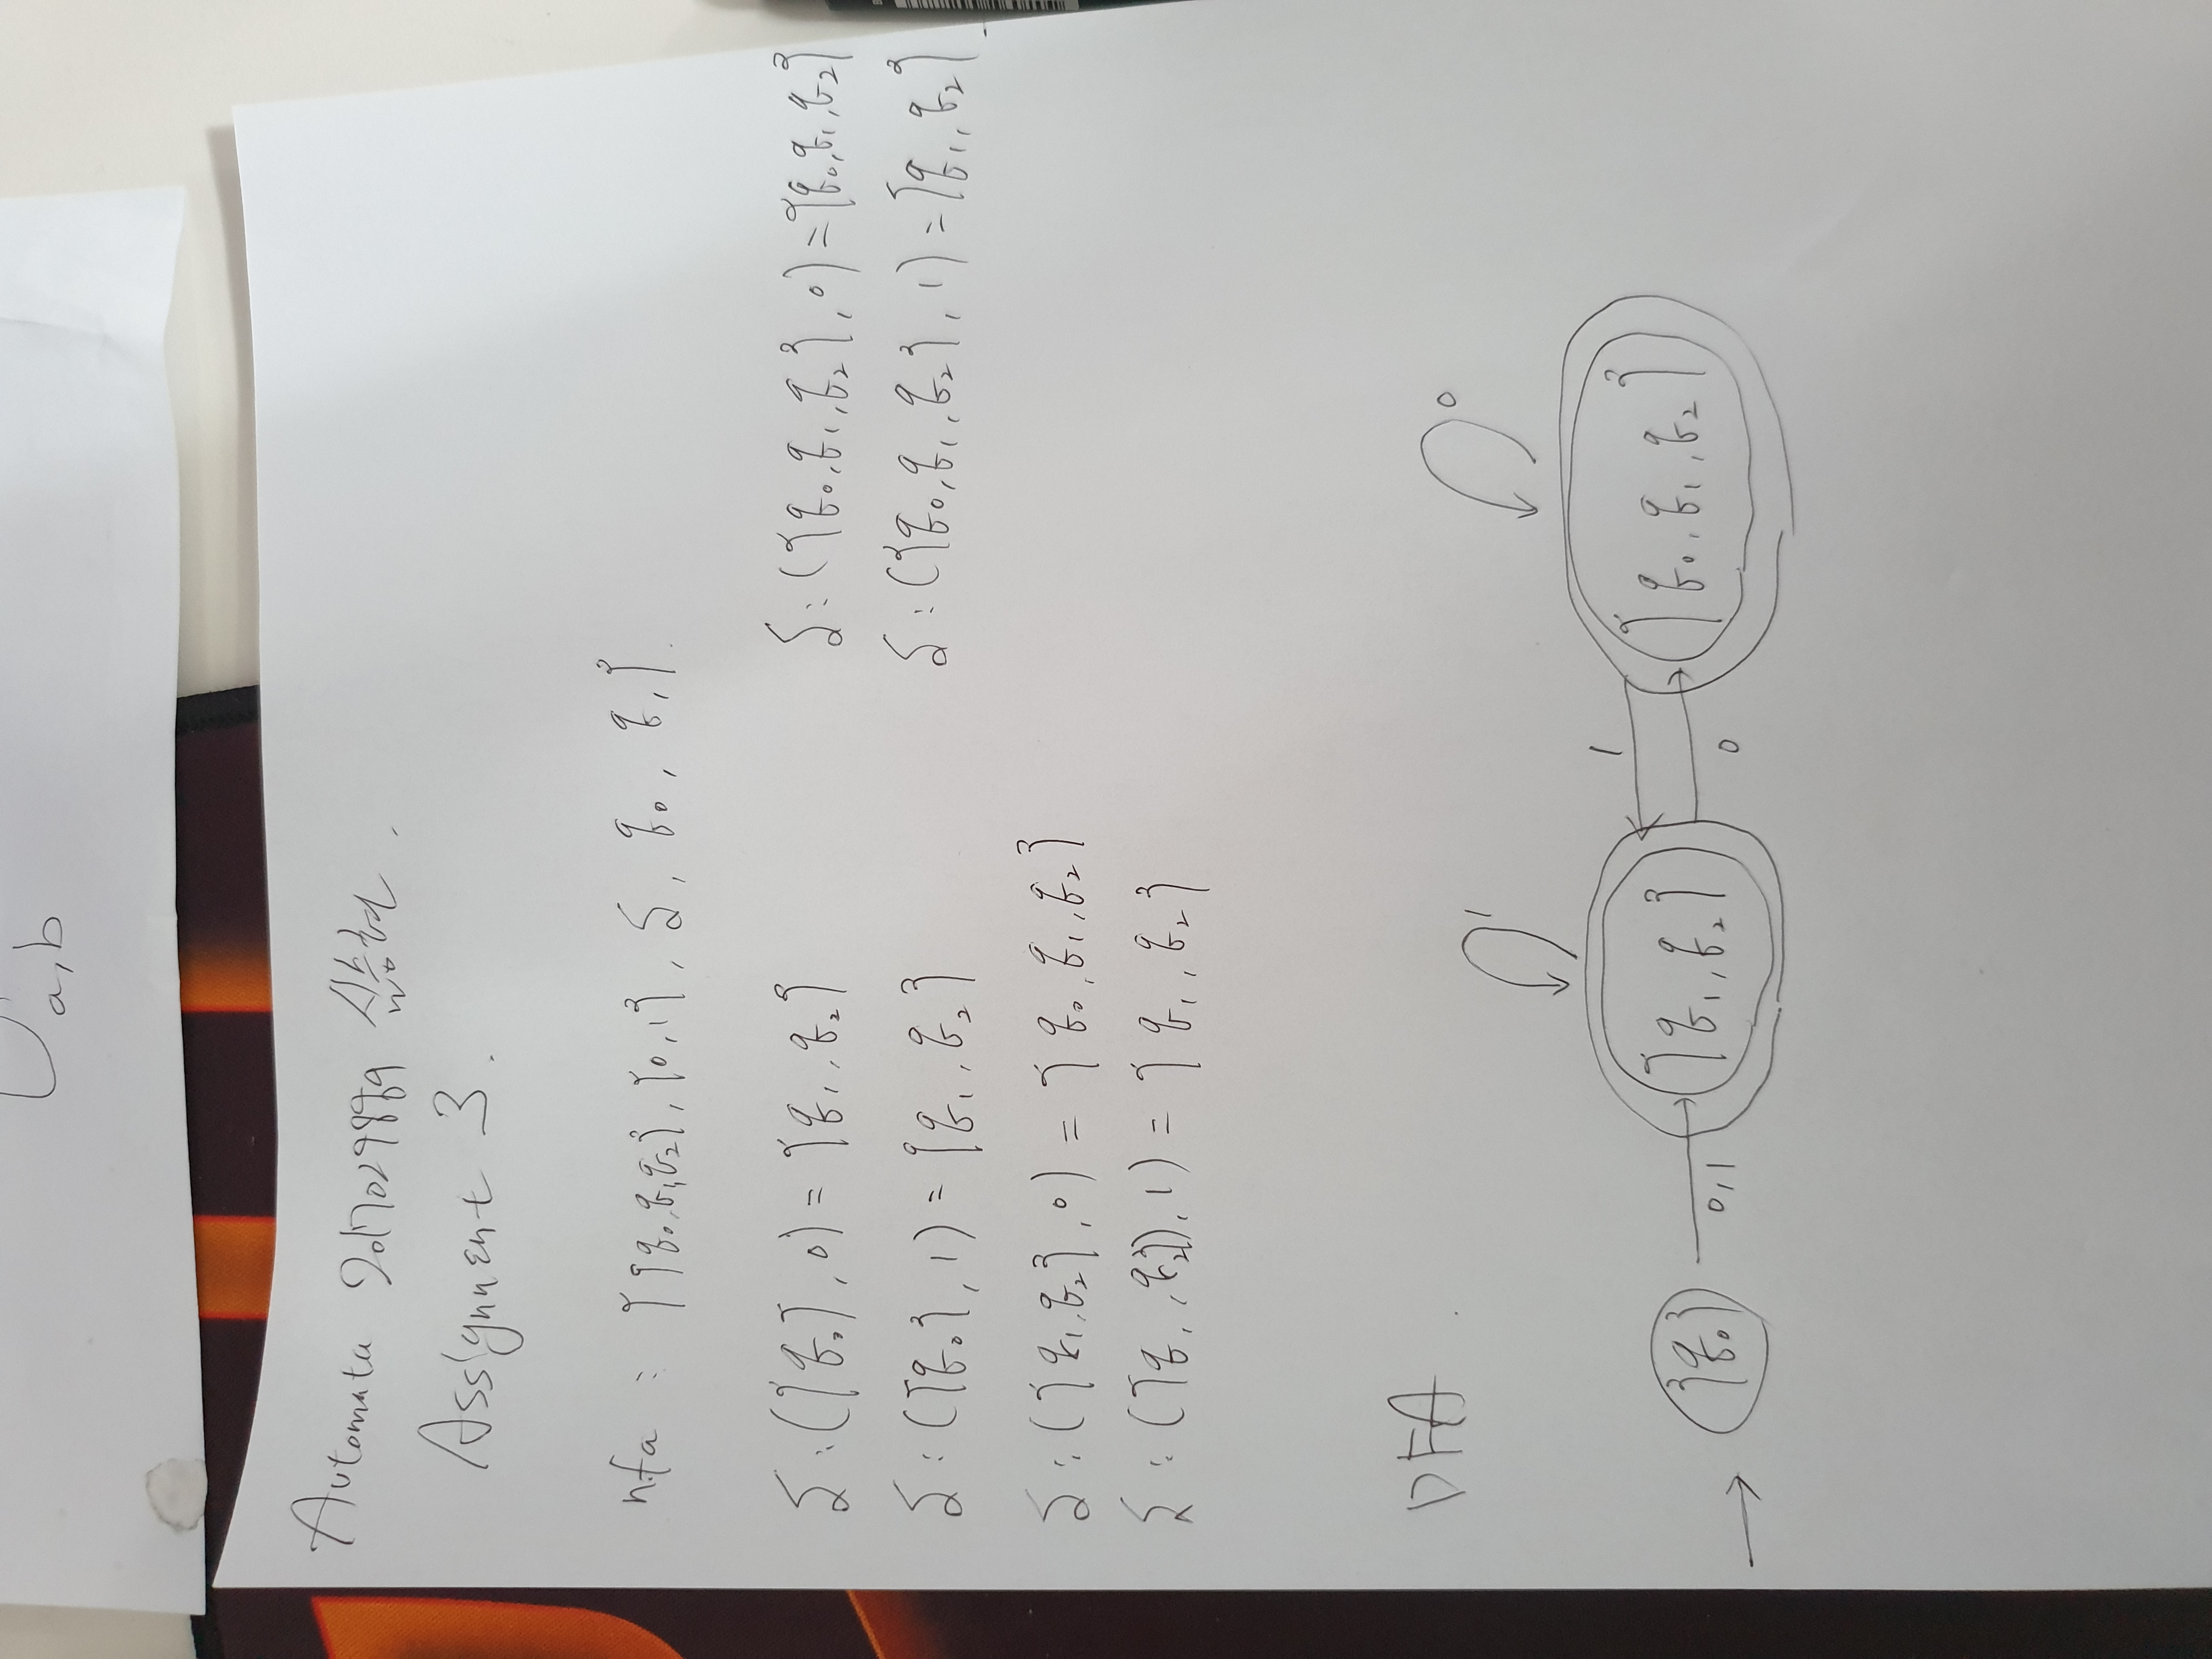 a,b
Automata 2017029889
Assignment 3.
nfa : {{q₀,q₁,q₂}, {0,1}, δ, q₀, q₁}.
δ:({q₀}, 0) = {q₁, q₂}
δ:({q₀}, 1) = {q₁, q₂}
δ:({q₁,q₂}, 0) = {q₀, q₁, q₂}
δ:({q₁,q₂}, 1) = {q₁, q₂}
δ:({q₀,q₁,q₂}, 0) = {q₀,q₁,q₂}
δ:({q₀,q₁,q₂}, 1) = {q₁, q₂}
DFA.
1
0
{q₀}
0,1
{q₁, q₂}
1
0
{q₀, q₁, q₂}